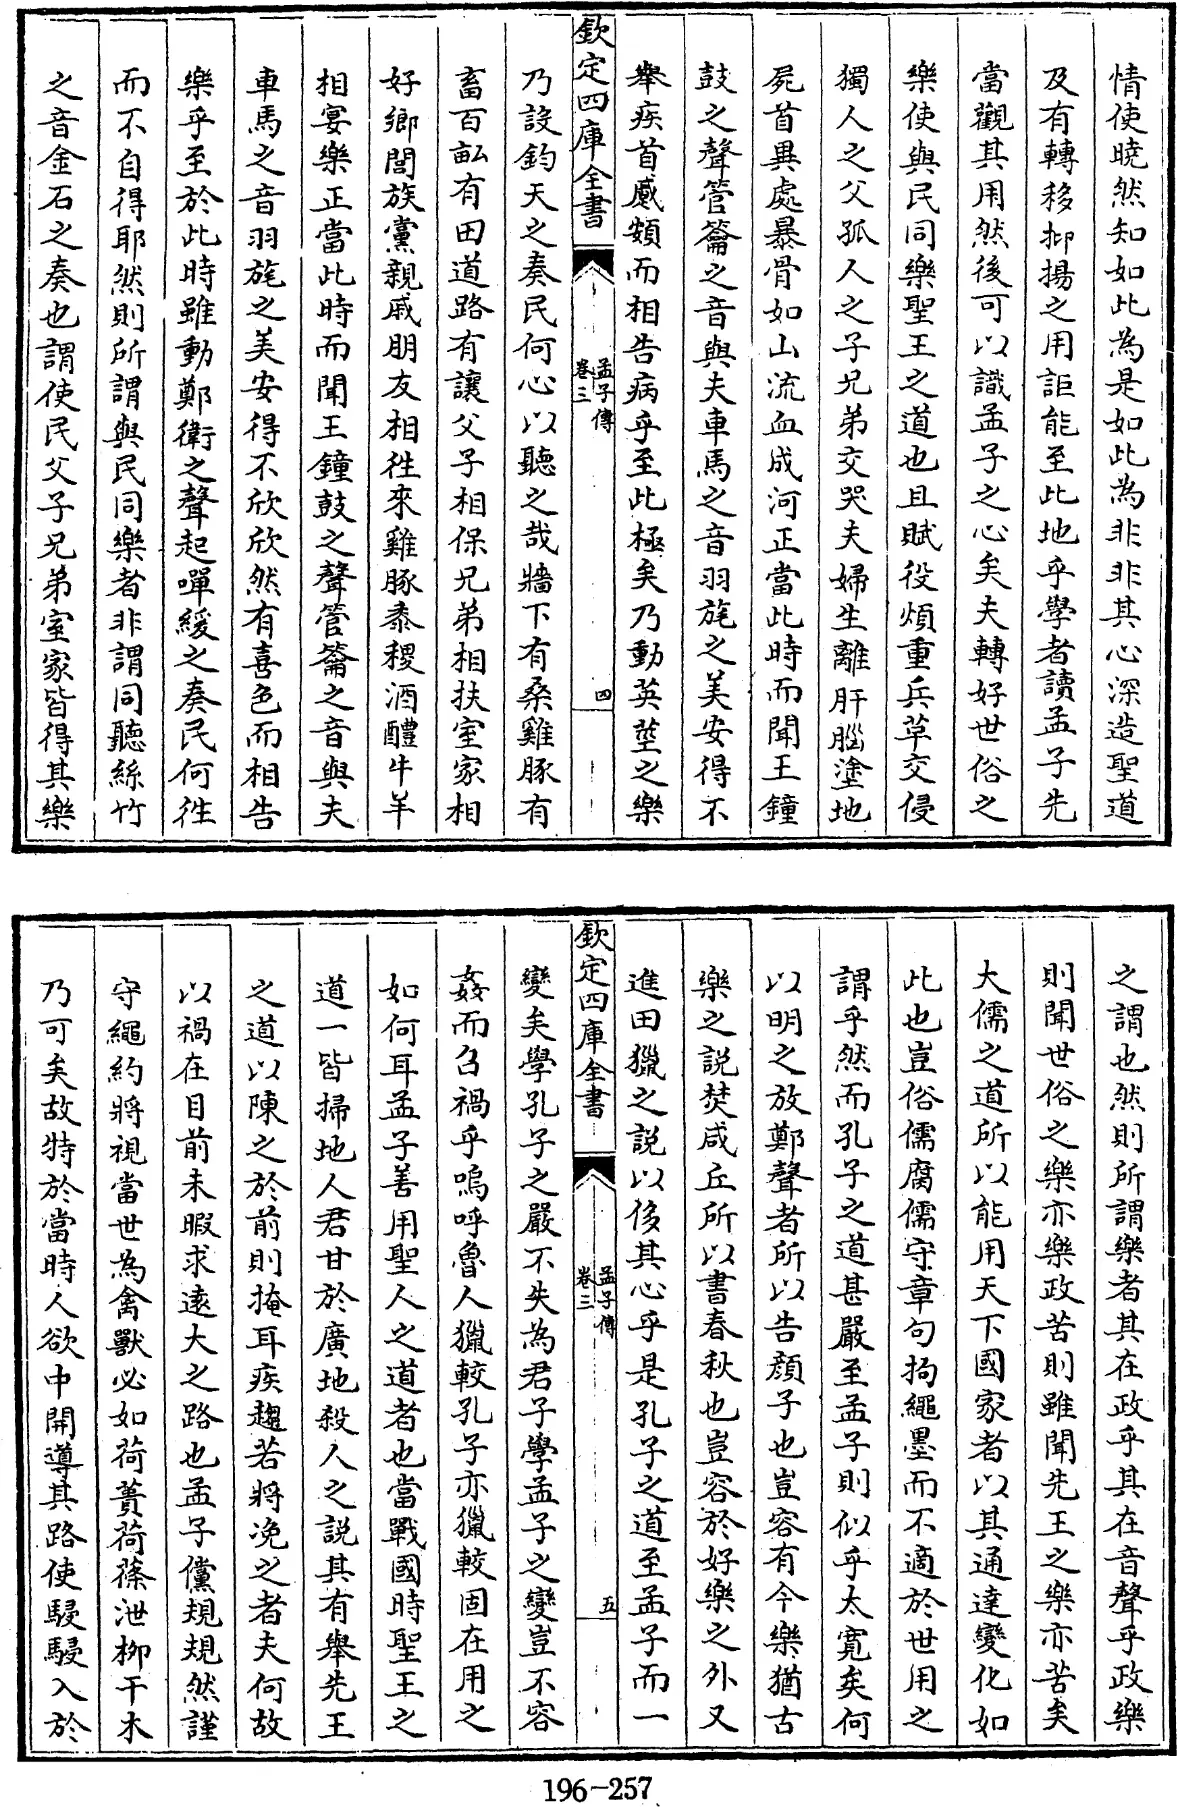 情使曉然知如此為是如此為非非其心深造聖道
及有轉移抑揚之用詎能至此地乎學者讀孟子先
當觀其用然後可以識孟子之心矣夫轉好世俗之
樂使與民同樂聖王之道也且賦役煩重兵革交侵
獨人之父孤人之子兄弟交哭夫婦生離肝腦塗地
屍首異處暴骨如山流血成河正當此時而聞王鐘
鼓之聲管籥之音與夫車馬之音羽旄之美安得不
舉疾首蹙頞而相告病乎至此極矣乃動英莖之樂
欽定四庫全書
孟子傳
卷三
四
乃設鈞天之奏民何心以聽之哉牆下有桑雞豚有
畜百畝有田道路有讓父子相保兄弟相扶室家相
好鄉閭族黨親戚朋友相徃來雞豚黍稷酒醴牛羊
相宴樂正當此時而聞王鐘鼓之聲管籥之音與夫
車馬之音羽旄之美安得不欣欣然有喜色而相告
樂乎至於此時雖動鄭衛之聲起嘽緩之奏民何徃
而不自得耶然則所謂與民同樂者非謂同聽絲竹
之音金石之奏也謂使民父子兄弟室家皆得其樂
之謂也然則所謂樂者其在政乎其在音聲乎政樂
則聞世俗之樂亦樂政苦則雖聞先王之樂亦苦矣
大儒之道所以能用天下國家者以其通達變化如
此也豈俗儒腐儒守章句拘繩墨而不適於世用之
謂乎然而孔子之道甚嚴至孟子則似乎太寬矣何
以明之放鄭聲者所以告顏子也豈容有今樂猶古
樂之説焚咸丘所以書春秋也豈容於好樂之外又
進田獵之説以侈其心乎是孔子之道至孟子而一
欽定四庫全書
孟子傳
卷三
五
變矣學孔子之嚴不失為君子學孟子之變豈不容
姦而召禍乎嗚呼魯人獵較孔子亦獵較固在用之
如何耳孟子善用聖人之道者也當戰國時聖王之
道一皆掃地人君甘於廣地殺人之説其有舉先王
之道以陳之於前則掩耳疾趨若將浼之者夫何故
以禍在目前未暇求遠大之路也孟子儻規規然謹
守繩約將視當世為禽獸必如荷蕢荷蓧泄柳干木
乃可矣故特於當時人欲中開導其路使駸駸入於
196-257